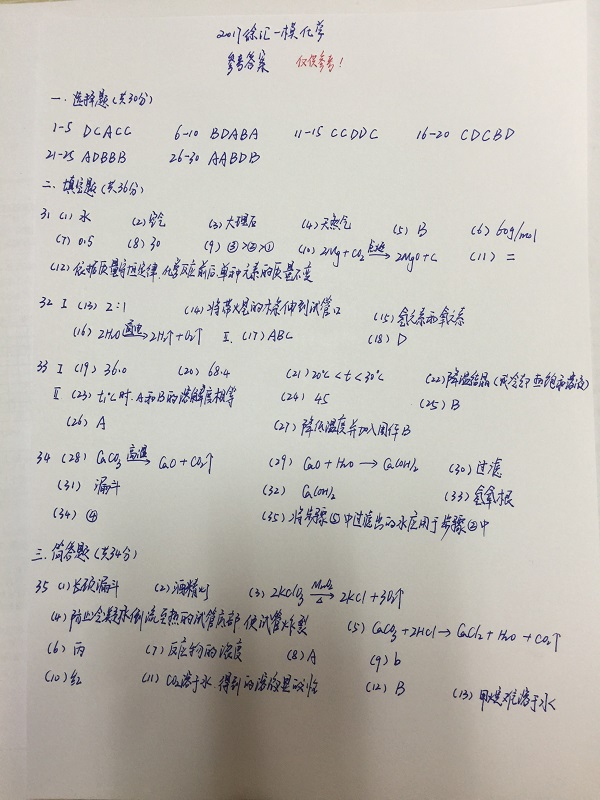 2017徐汇一模化学
参考答案 仅供参考！
一.选择题(共30分)
1-5 DCACC 6-10 BDABA 11-15 CCDDC 16-20 CDCBD
21-25 ADBBB 26-30 AABDB
二.填空题(共36分)
31 (1)水 (2)空气 (3)大理石 (4)天然气 (5) B (6) 60g/mol
(7) 0.5 (8) 30 (9) ③>②>① (10) 2Mg+CO₂ 点燃→ 2MgO+C (11) 二
(12)依据质量守恒定律,化学反应前后,每种元素的质量不变
32 Ⅰ (13) 2:1 (14)将带火星的木条伸到试管口 (15)氢元素和氧元素
(16) 2H₂O 通电→ 2H₂↑+O₂↑ Ⅱ. (17) ABC (18) D
33 Ⅰ (19) 36.0 (20) 68.4 (21) 20℃<t<30℃ (22)降温结晶(或冷却热饱和溶液)
Ⅱ (23) t₁℃时.A和B的溶解度相等 (24) 45 (25) B
(26) A (27)降低温度并加入固体B
34 (28) CaCO₃ 高温→ CaO+CO₂↑ (29) CaO+H₂O → Ca(OH)₂ (30)过滤
(31) 漏斗 (32) Ca(OH)₂ (33)氢氧根
(34) ④ (35)将步骤⑤中过滤出的水应用于步骤②中
三.简答题(共34分)
35 (1)长颈漏斗 (2)酒精灯 (3) 2KClO₃ MnO₂ △→ 2KCl+3O₂↑
(4)防止冷凝水倒流至热的试管底部 使试管炸裂 (5) CaCO₃+2HCl → CaCl₂+H₂O+CO₂↑
(6) 丙 (7)反应物的浓度 (8) A (9) b
(10)红 (11) CO₂溶于水.得到的溶液显酸性 (12) B (13)甲烷难溶于水